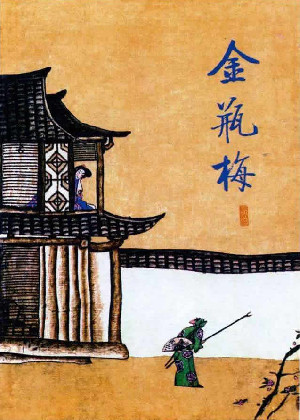 金
瓶
梅